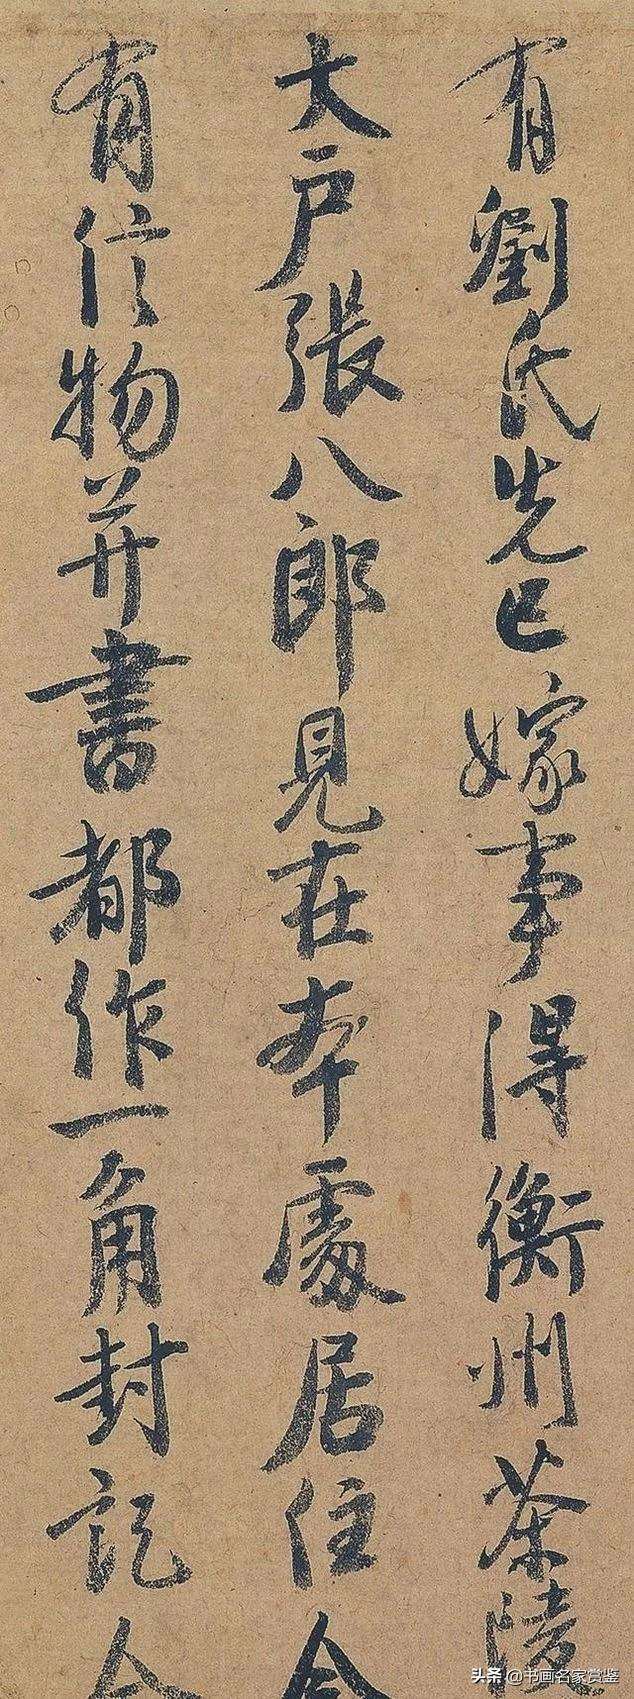 有劉氏先已嫁事得衡州茶陵
大戶張八郎見在本處居住今
有信物并書都作一角封訖今
头条 @书画名家赏鉴